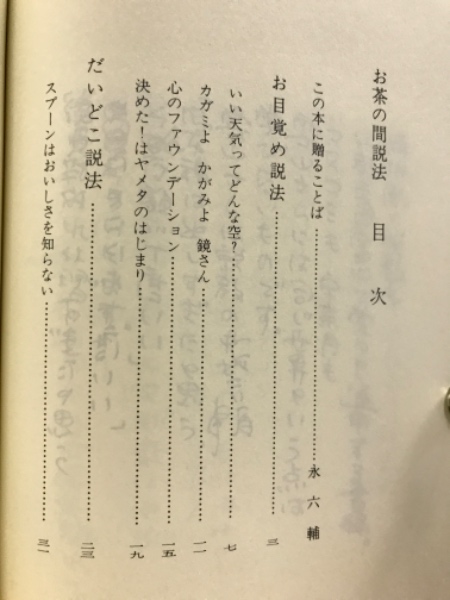 お茶の間説法 目次
この本に贈ることば……永六輔
お目覚め説法……三
いい天気ってどんな空?……七
カガミよ かがみよ 鏡さん……一一
心のファウンデーション……一五
決めた!はヤメタのはじまり……一九
だいどこ説法……二三
スプーンはおいしさを知らない……三一